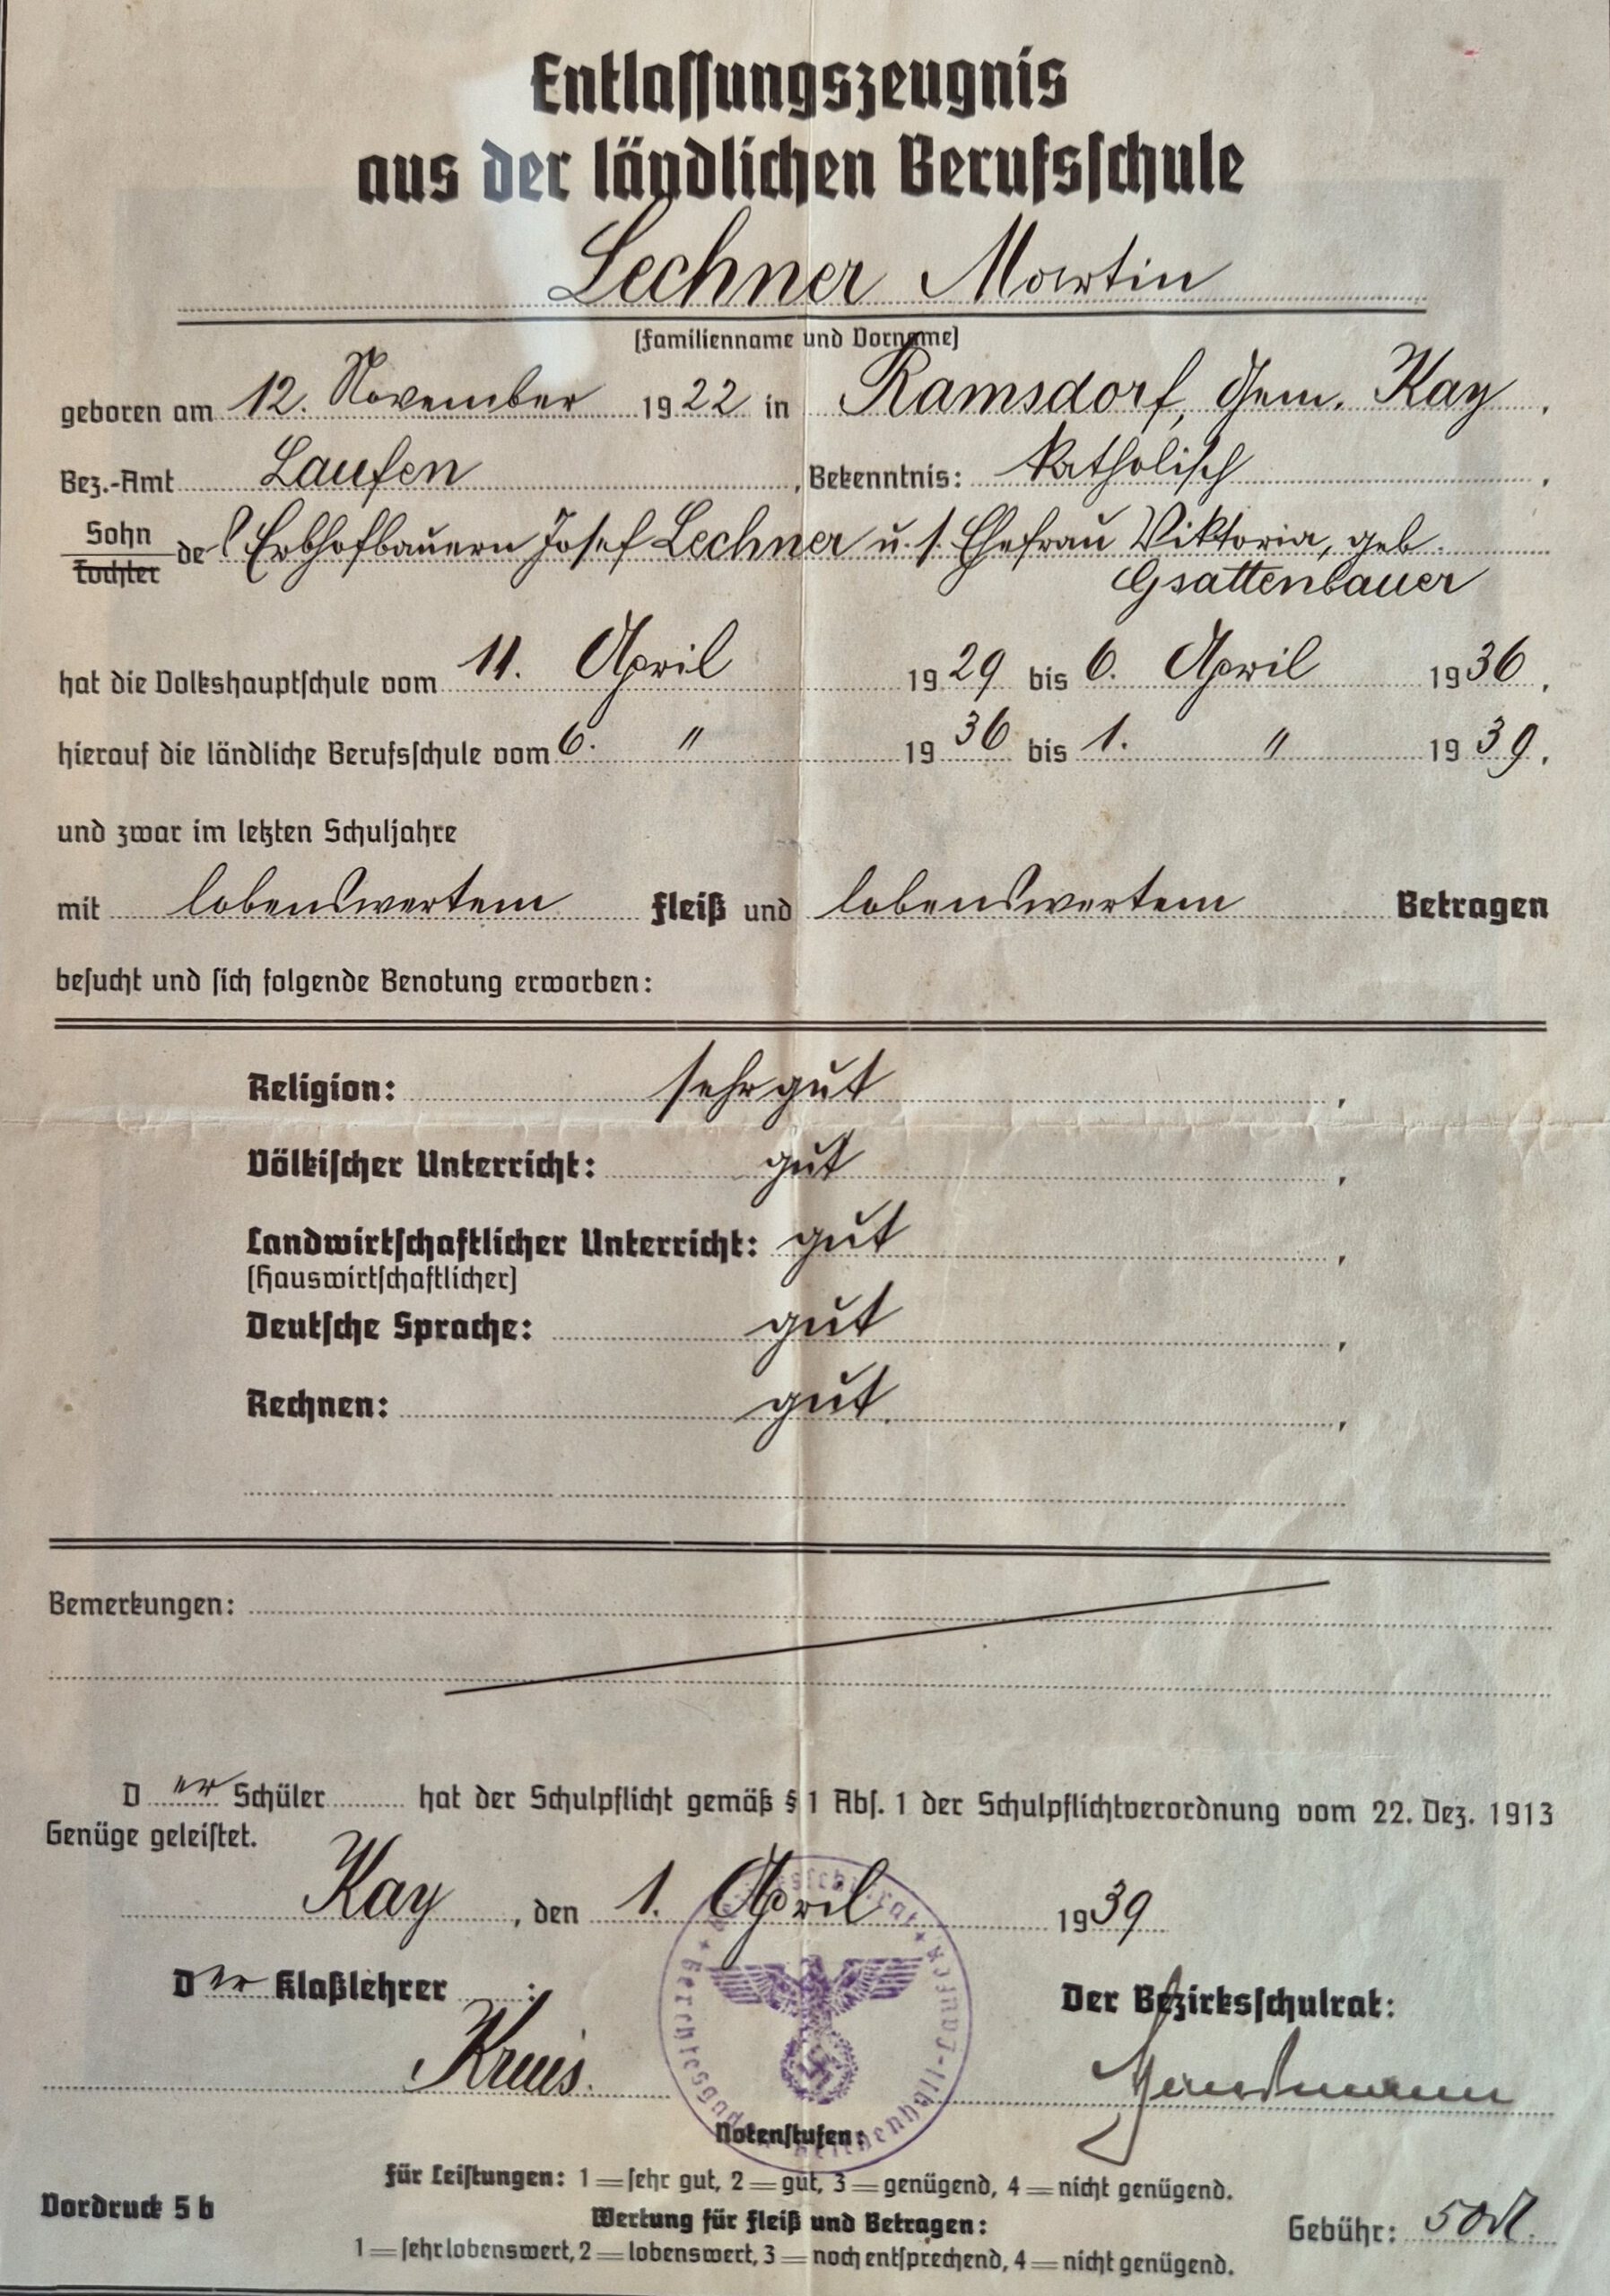 Entlassungszeugnis
aus der ländlichen Berufsschule
Lechner Martin
(Familienname und Vorname)
geboren am 12. November 1922 in Ramsdorf, Gem. Kay,
Bez.-Amt Laufen, Bekenntnis: katholisch,
Sohn
Tochter
des Erbhofbauern Josef Lechner u. s. Ehefrau Viktoria, geb.
Gsattenbauer
hat die Volkshauptschule vom 11. April 1929 bis 6. April 1936,
hierauf die ländliche Berufsschule vom 6. " 1936 bis 1. " 1939,
und zwar im letzten Schuljahre
mit lobenswertem Fleiß und lobenswertem Betragen
besucht und sich folgende Benotung erworben:
Religion: sehr gut,
Völkischer Unterricht: gut,
Landwirtschaftlicher Unterricht: gut,
(Hauswirtschaftlicher)
Deutsche Sprache: gut,
Rechnen: gut,
Bemerkungen:
Der Schüler hat der Schulpflicht gemäß § 1 Abs. 1 der Schulpflichtverordnung vom 22. Dez. 1913
Genüge geleistet.
Kay, den 1. April 1939
Der Klaßlehrer:
Der Bezirksschulrat:
Bezirksschulrat + Berchtesgaden-Reichenhall-Laufen +
Notenstufen:
Für Leistungen: 1 = sehr gut, 2 = gut, 3 = genügend, 4 = nicht genügend.
Vordruck 5 b
Wertung für Fleiß und Betragen:
1 = sehr lobenswert, 2 = lobenswert, 3 = noch entsprechend, 4 = nicht genügend.
Gebühr: 50